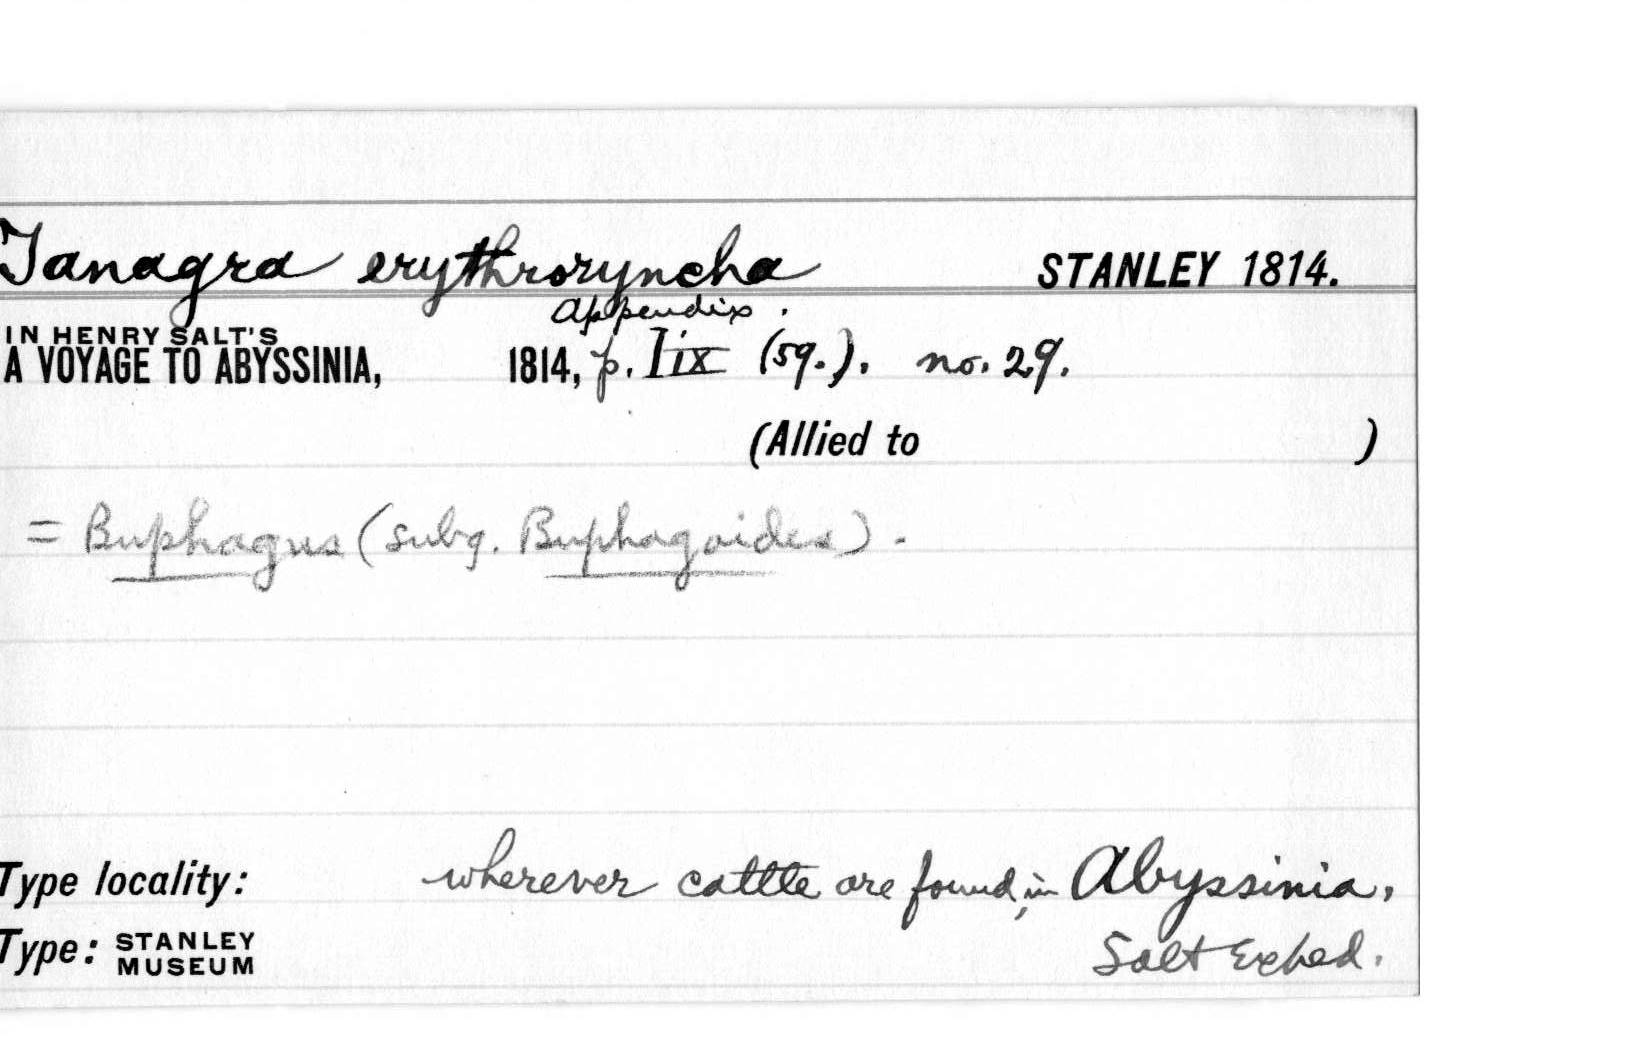 Tanagra erythroryncha STANLEY 1814.
Appendix.
IN HENRY SALT'S
A VOYAGE TO ABYSSINIA, 1814, p. lix (59.). no. 29.
(Allied to )
= Buphagus (subg. Buphagoides).
Type locality: wherever cattle are found, in Abyssinia,
Type: STANLEY MUSEUM Salt Exped.